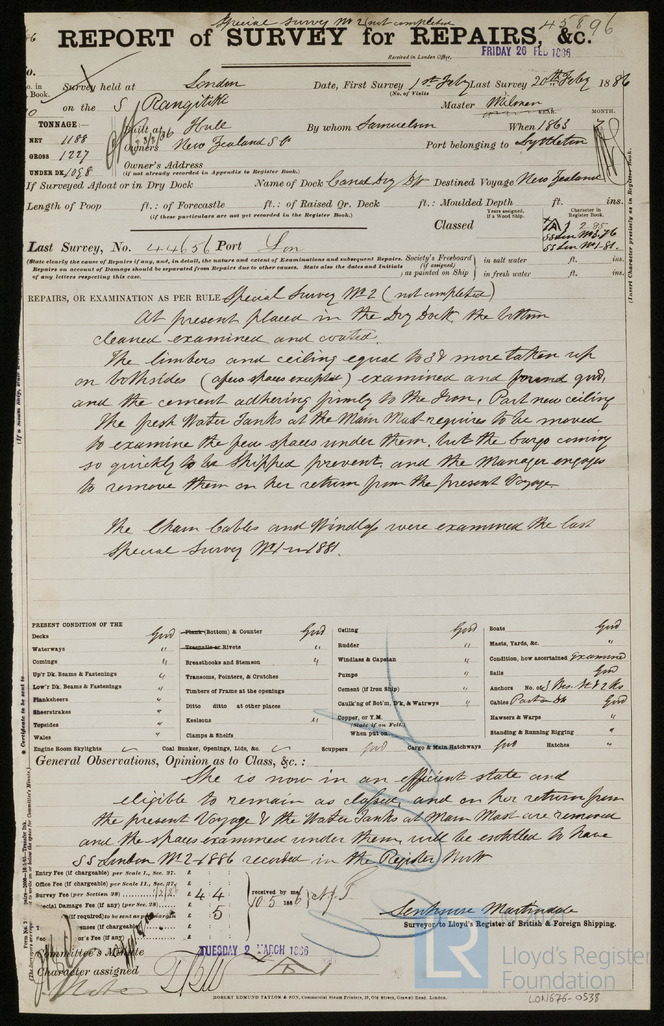 Special Survey No 2 (not completed
45896
REPORT of SURVEY for REPAIRS, &c.
Received in London Office,
FRIDAY 26 FEB 1886
Survey held at London Date, First Survey 1st Feby Last Survey 20th Feby 1886
(No. of Visits
on the S Rangitiki Master Milman
TONNAGE:— Built at Hull By whom Samuelson When 1863 MONTH.
NET 1188 Owners New Zealand S Co Port belonging to Lyttleton
GROSS 1227 Owner's Address
UNDER DK. 1098 (if not already recorded in Appendix to Register Book.)
If Surveyed Afloat or in Dry Dock Name of Dock Canal Dry Dk Destined Voyage New Zealand
Length of Poop ft.: of Forecastle ft.: of Raised Qr. Deck ft.: Moulded Depth ft. ins.
(if these particulars are not yet recorded in the Register Book.)
Years assigned, if a Wood Ship. Character in Register Book.
Classed
SS Lon No 3.76
SS Lon No 1.81.
Last Survey, No. 44656 Port Lon
(State clearly the cause of Repairs if any, and, in detail, the nature and extent of Examinations and subsequent Repairs.
Repairs on account of Damage should be separated from Repairs due to other causes. State also the dates and Initials
of any letters respecting this case.
Society's Freeboard (if assigned) as painted on Ship
in salt water ft. ins.
in fresh water ft. ins.
REPAIRS, OR EXAMINATION AS PER RULE Special Survey No 2 (not completed)
At present placed in the Dry Dock the bottom
cleaned examined and coated.
The limbers and ceiling equal to 3 & more taken up
on both sides (afew spaces excepted) examined and found good,
and the cement adhering firmly to the Iron, Part new ceiling
The fresh Water Tanks at the Main Mast requires to be moved
to examine the few spaces under them, but the Cargo coming
so quickly to be Shipped prevent, and the Manager engages
to remove them on her return from the present Voyage
The Chain Cables and Windlass were examined the last
Special Survey No 1 in 1881.
PRESENT CONDITION OF THE
Decks Good
Waterways "
Comings "
Up'r Dk. Beams & Fastenings "
Low'r Dk. Beams & Fastenings "
Planksheers "
Sheerstrakes "
Topsides "
Wales "
Engine Room Skylights
Plank (Bottom) & Counter Good
Treenails or Rivets "
Breasthooks and Stemson "
Transoms, Pointers, & Crutches
Timbers of Frame at the openings
Ditto ditto at other places
Keelsons "
Clamps & Shelfs
Coal Bunker, Openings, Lids, &c.
Ceiling Good
Rudder "
Windlass & Capstan "
Pumps "
Cement (if Iron Ship) "
Caulk'ng of Bot'm, D'k, & Watrwys "
Copper, or Y.M.
(State if on Felt.)
When put on
Scuppers Good Cargo & Main Hatchways Good
Boats Good
Masts, Yards, &c. "
Condition, how ascertained Examined
Sails Good
Anchors No. of 3 Bow. St & 2 Ks
Cables Part on Dk Good
Hawsers & Warps "
Standing & Running Rigging "
Hatches "
General Observations, Opinion as to Class, &c. :
She is now in an efficient state and
eligible to remain as classed, and on her return from
the present Voyage & the Water Tanks at Main Mast are removed
and the spaces examined under them, will be entitled to have
SS London No 2-1886 recorded in the Register Book
Entry Fee (if chargeable) per Scale I., Sec. 27. £
Office Fee (if chargeable) per Scale II., Sec. 27. £
Survey Fee (per Section 28) £ 4 4
Special Damage Fee (if any) (per Sec. 28) £ 5
received by me
10 5 1886
Surveyor to Lloyd's Register of British & Foreign Shipping.
Committee's Minute TUESDAY 2 MARCH 1886
Character assigned
ROBERT EDMUND TAYLOR & SON, Commercial Steam Printers, 19, Old Street, Goswell Road, London.
LR Lloyd's Register
Foundation
LON676-0538